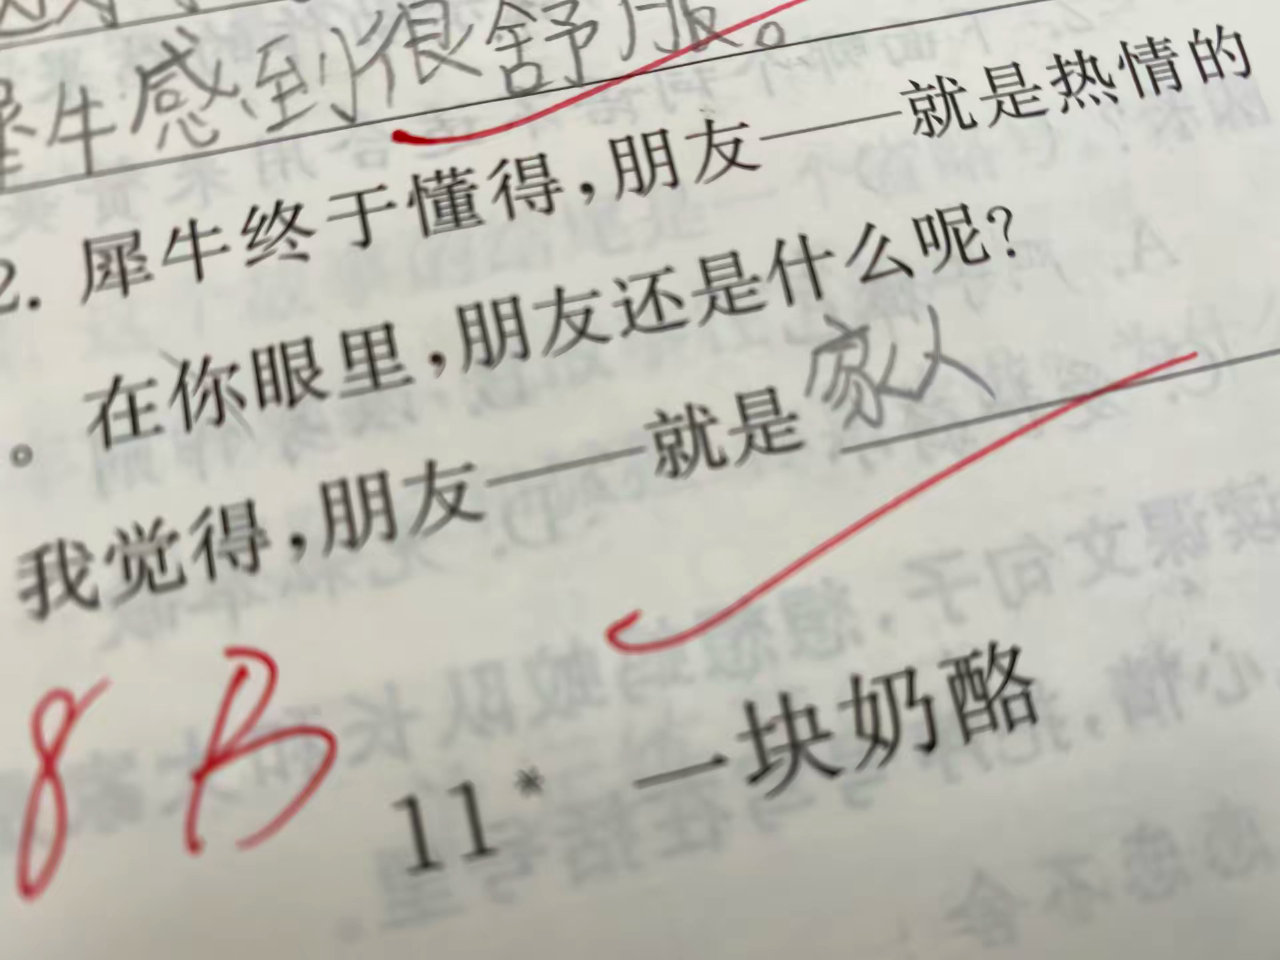 犀牛感到很舒服。
2. 犀牛终于懂得,朋友——就是热情的
。在你眼里,朋友还是什么呢?
我觉得,朋友——就是家人
8 B
11* 一块奶酪